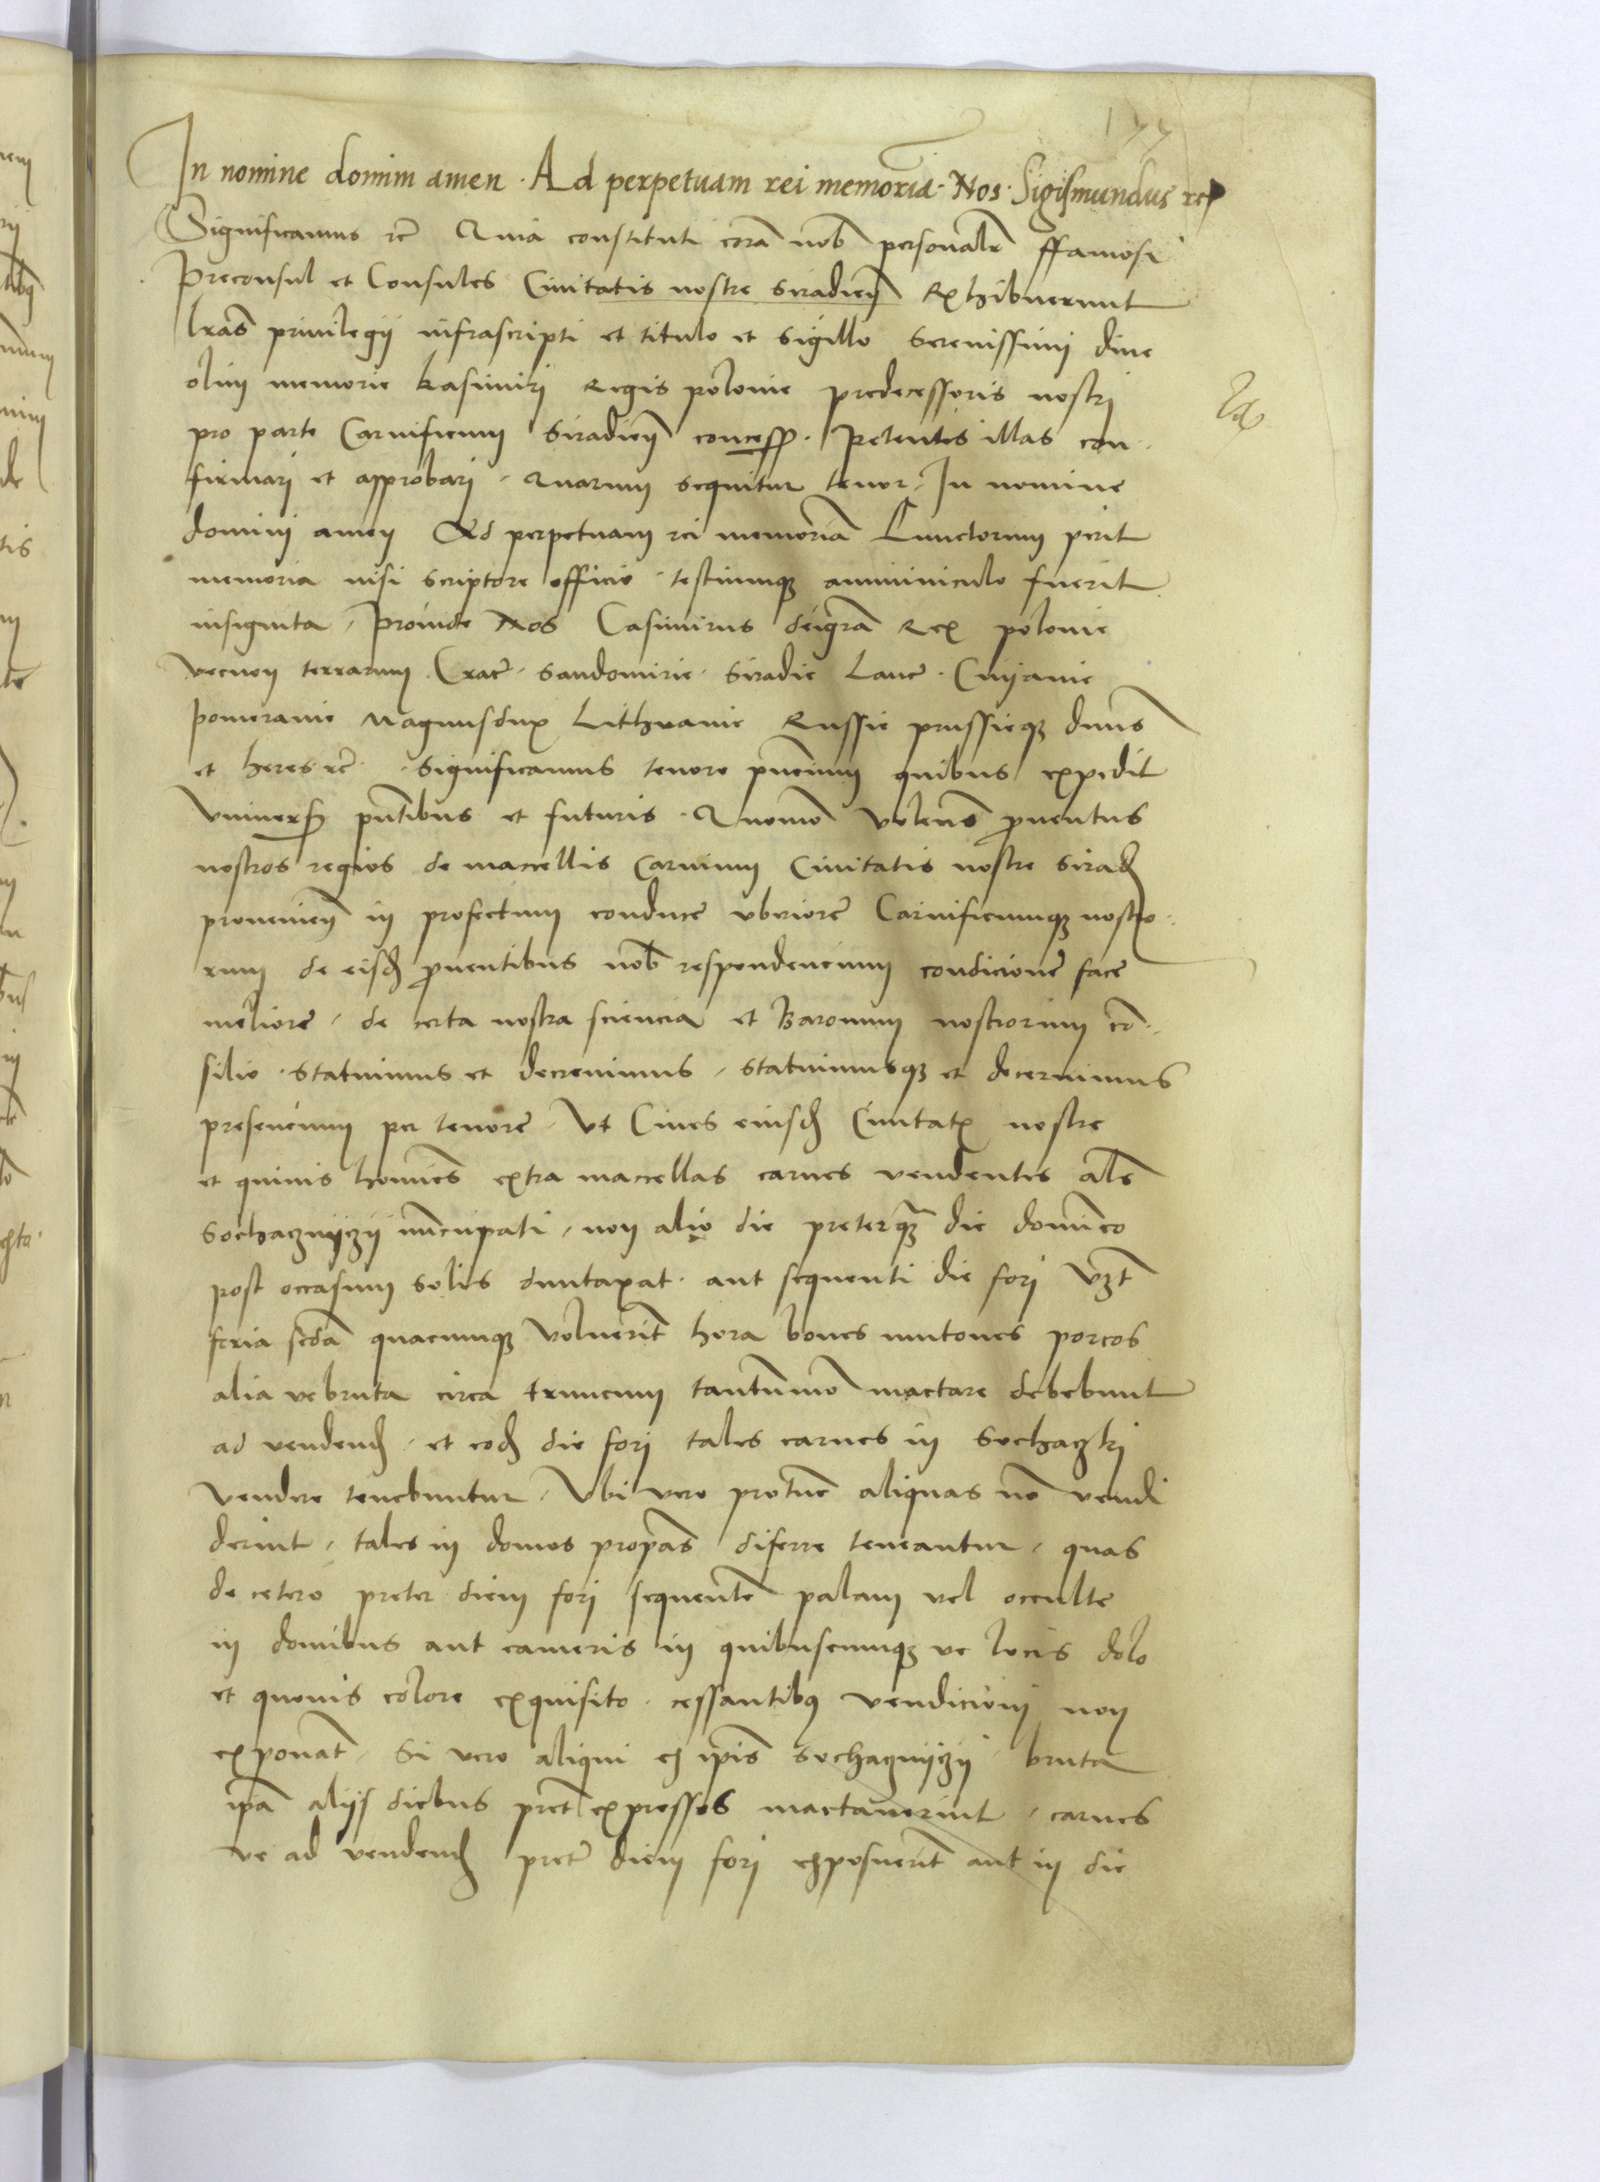 177
In nomine domini amen · Ad perpetuam rei memoriā · Nos · Sigismundus rc̄
Significamus rc̄ Quia constituti corā nob̄ personalr̄ ffamosi
Preconsul et Consules Civitatis nostre Siradieñ Exhibuerunt
l̄ras privilegij infrascripti et titulo et sigillo serenissimi dive
olim memorie kasimiri Regis polonie predecessoris nostri
pro parte Carnificum Siradieñ concess̄ · Petentes illas con-
firmari et approbari · Quarum sequitur tenor · In nomine
domini amen Ad perpetuam rei memoriā Cunctorum perit
memoria nisi scriptore officio testiumq̧ amminiculo fuerit
insignita · Proinde Nos Casimirus deigrā Rex polonie
necnon terrarum Crac̄ · Sandomirie · Siradie Lanc̄ · Cuyavie
pomeranie Magnusdux Lithvanie Russie prussieq̧ dn̄us
et heres rc̄ · significamus tenore pn̄cium quibus expedit
Univers̄ pn̄tibus et futuris · Quomo volens̄ ꝓventus
nostros regios de maccellis Carnium Civitatis nostre Sirad̄
provenieñ in profectum conducē uberiorē Carnificumq̧ nostro-
rum de eisd̄ ꝓventibus nob̄ respondencium condicionē facē
meliorē · de certa nostra sciencia et Baronum nostrorum cō-
silio · statuimus et decrevimus · statuimusq̧ et decernimus
presencium per tenorē · Ut Cives eiusd̄ Civitatꝭ nostre
et quivis homīes extra maccellas carnes vendentes al̄s
sochaczniczij nūcupati · non alio die preterq̄ die domīco
post occasum solis duntaxat · aut sequenti die fori vꝫt
feria scd̄a quacumq̧ voluerīt hora boves mutones porcos
alia ve bruta circa truncum tantūmō mactare debebunt
ad vendend̄ · et eod̄ die fori tales carnes in sochaczki
vendere tenebuntur · Ubi vero protūc aliquas nō vendi
derint · tales in domos propas̄ differre teneantur · quas
de cetero preter diem fori sequentē palam vel occulte
in domibus aut cameris in quibuscumq̧ ve locis dolo
et quovis colore exquisito · cessantibꝰ vendicioni non
exponāt · Si vero aliqui ex ip̄is sochacznijczij · bruta
ip̄a alijs diebus pret̄ expressos mactaverint · carnes
ve ad vendend̄ pret̄ diem fori exposuerīt aut in die